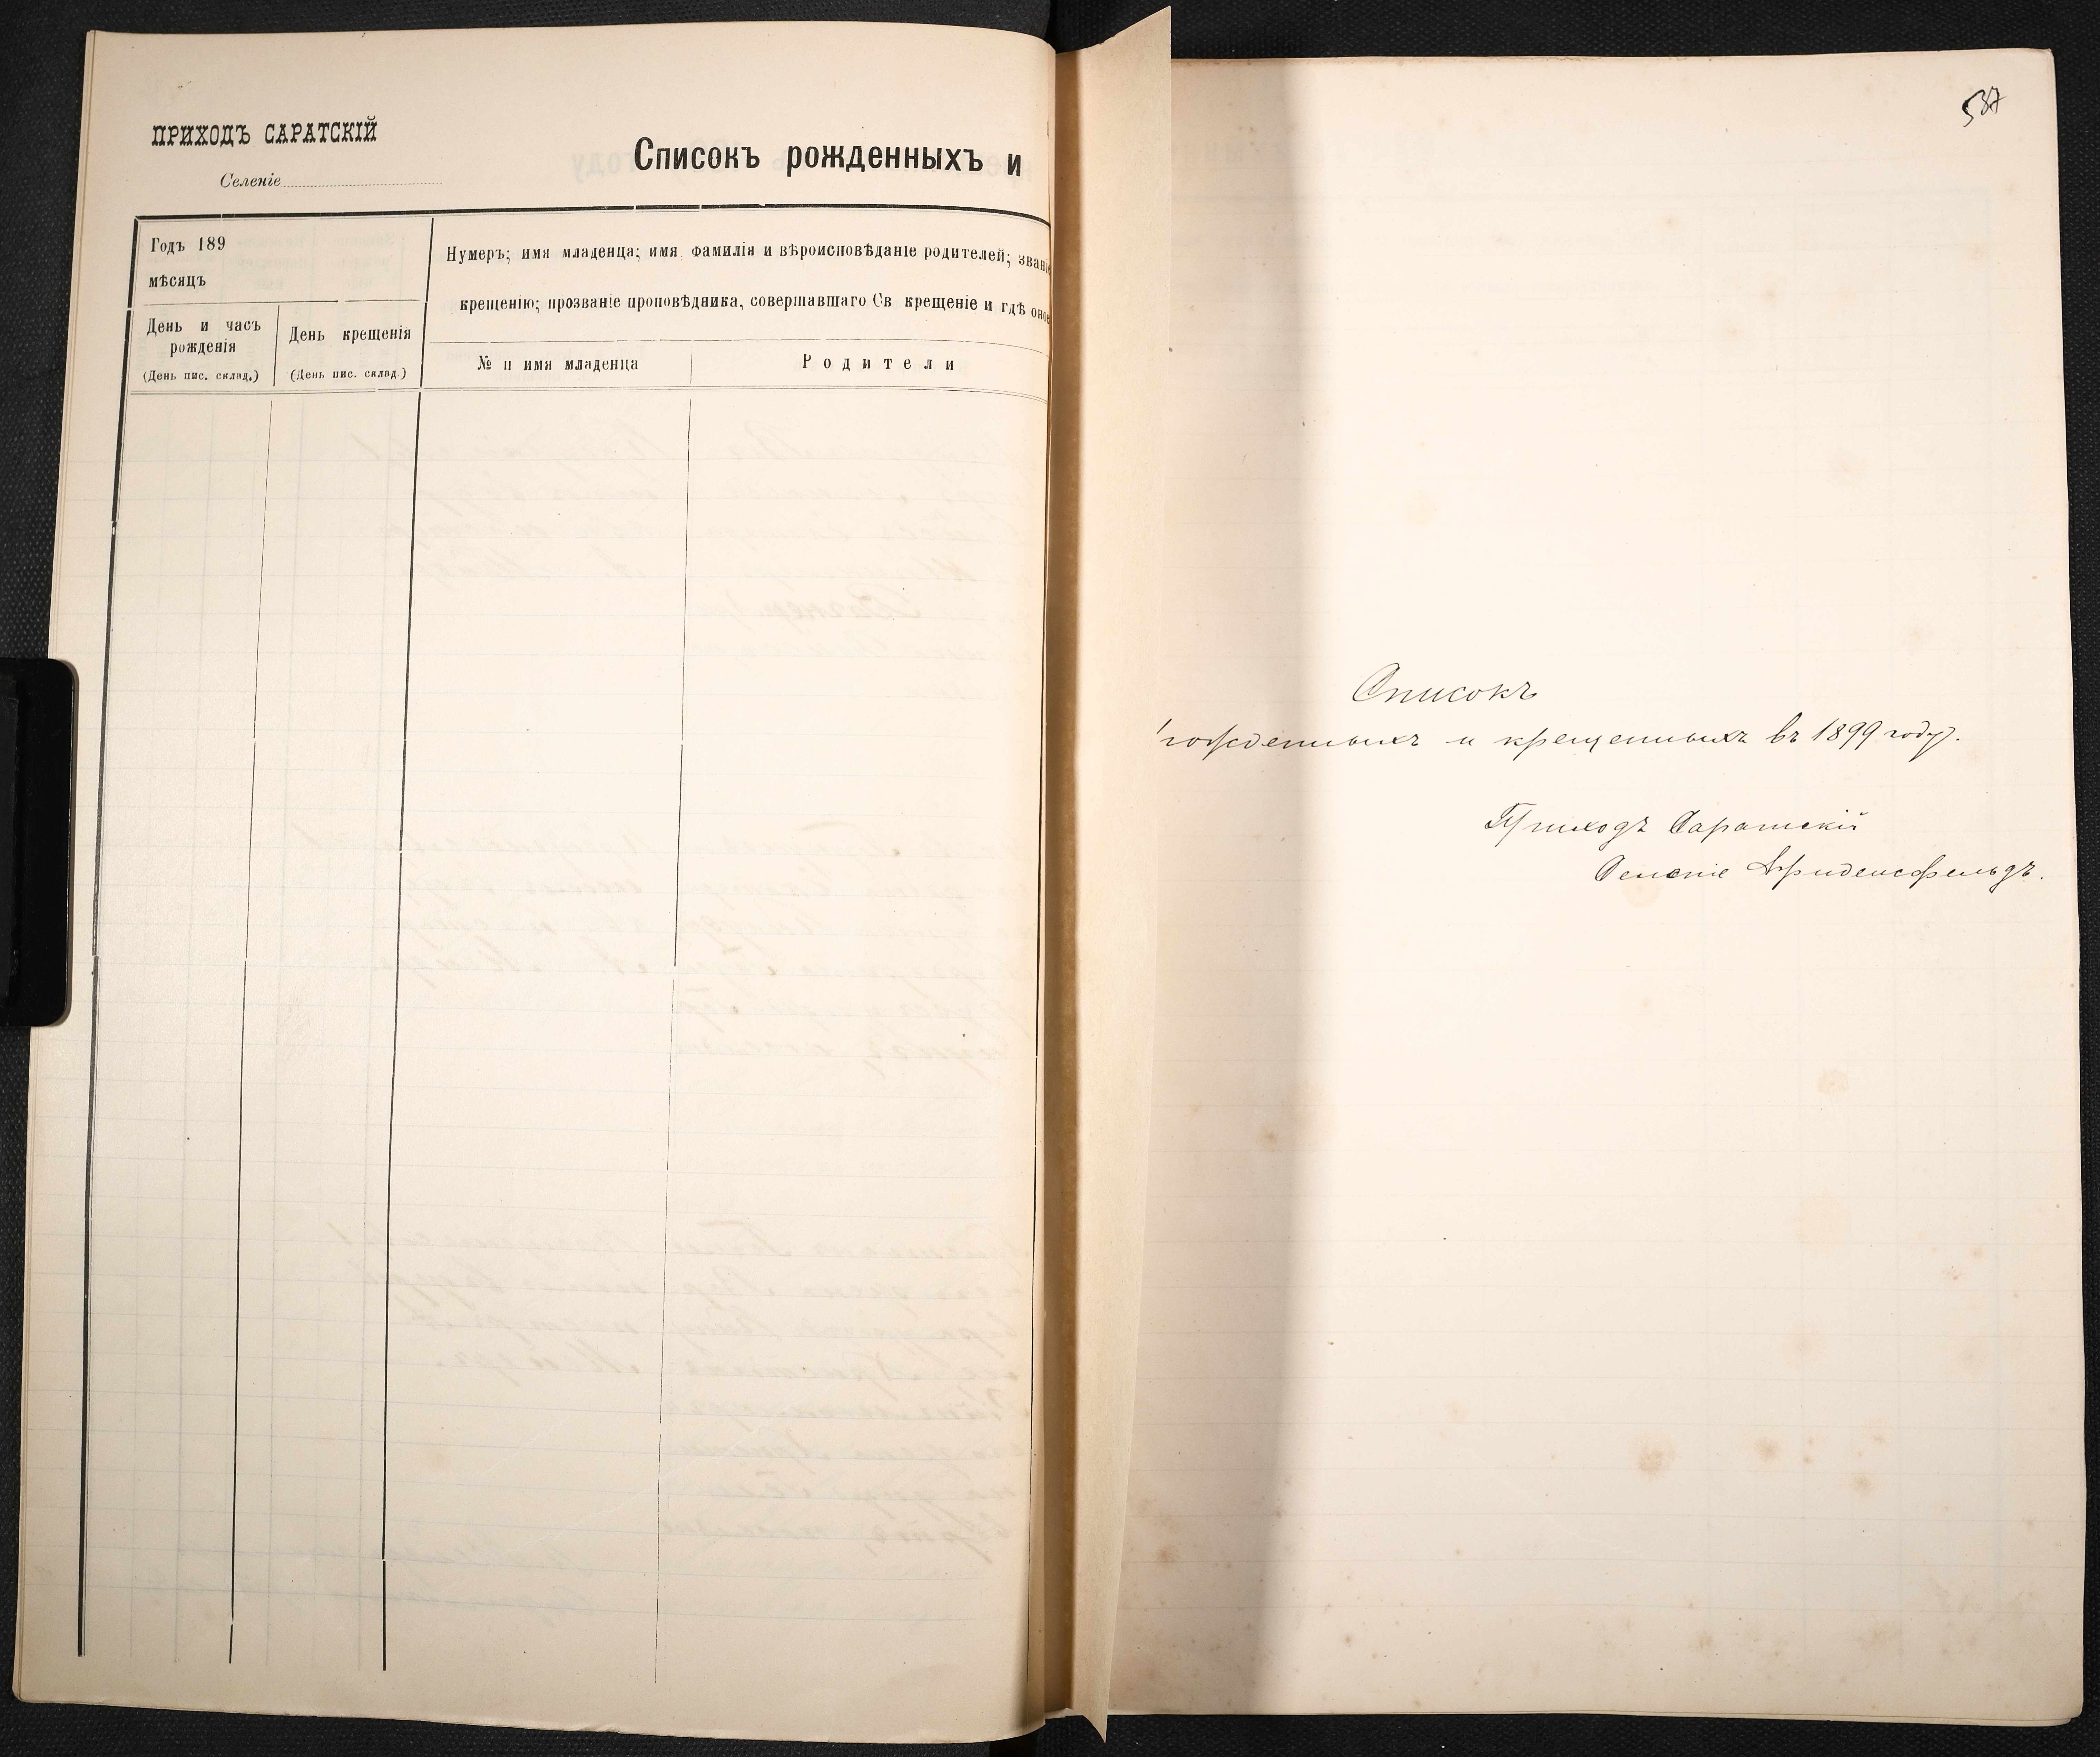 ПРИХОДЪ САРАТСКІЙ
Селеніе
Списокъ рожденныхъ и
Годъ 189
мѣсяцъ
День и часъ рожденія
(День пис. склад.)
День крещенія
(День пис. склад.)
Нумеръ; имя младенца; имя фамилія и вѣроисповѣданіе родителей; званіе
крещенію; прозваніе проповѣдника, совершавшаго Св крещеніе и гдѣ оное
№ и имя младенца
Родители
537
Списокъ
рожденныхъ и крещенныхъ въ 1899 году.
Приходъ Саратскій
Селеніе Фриденсфельдъ.